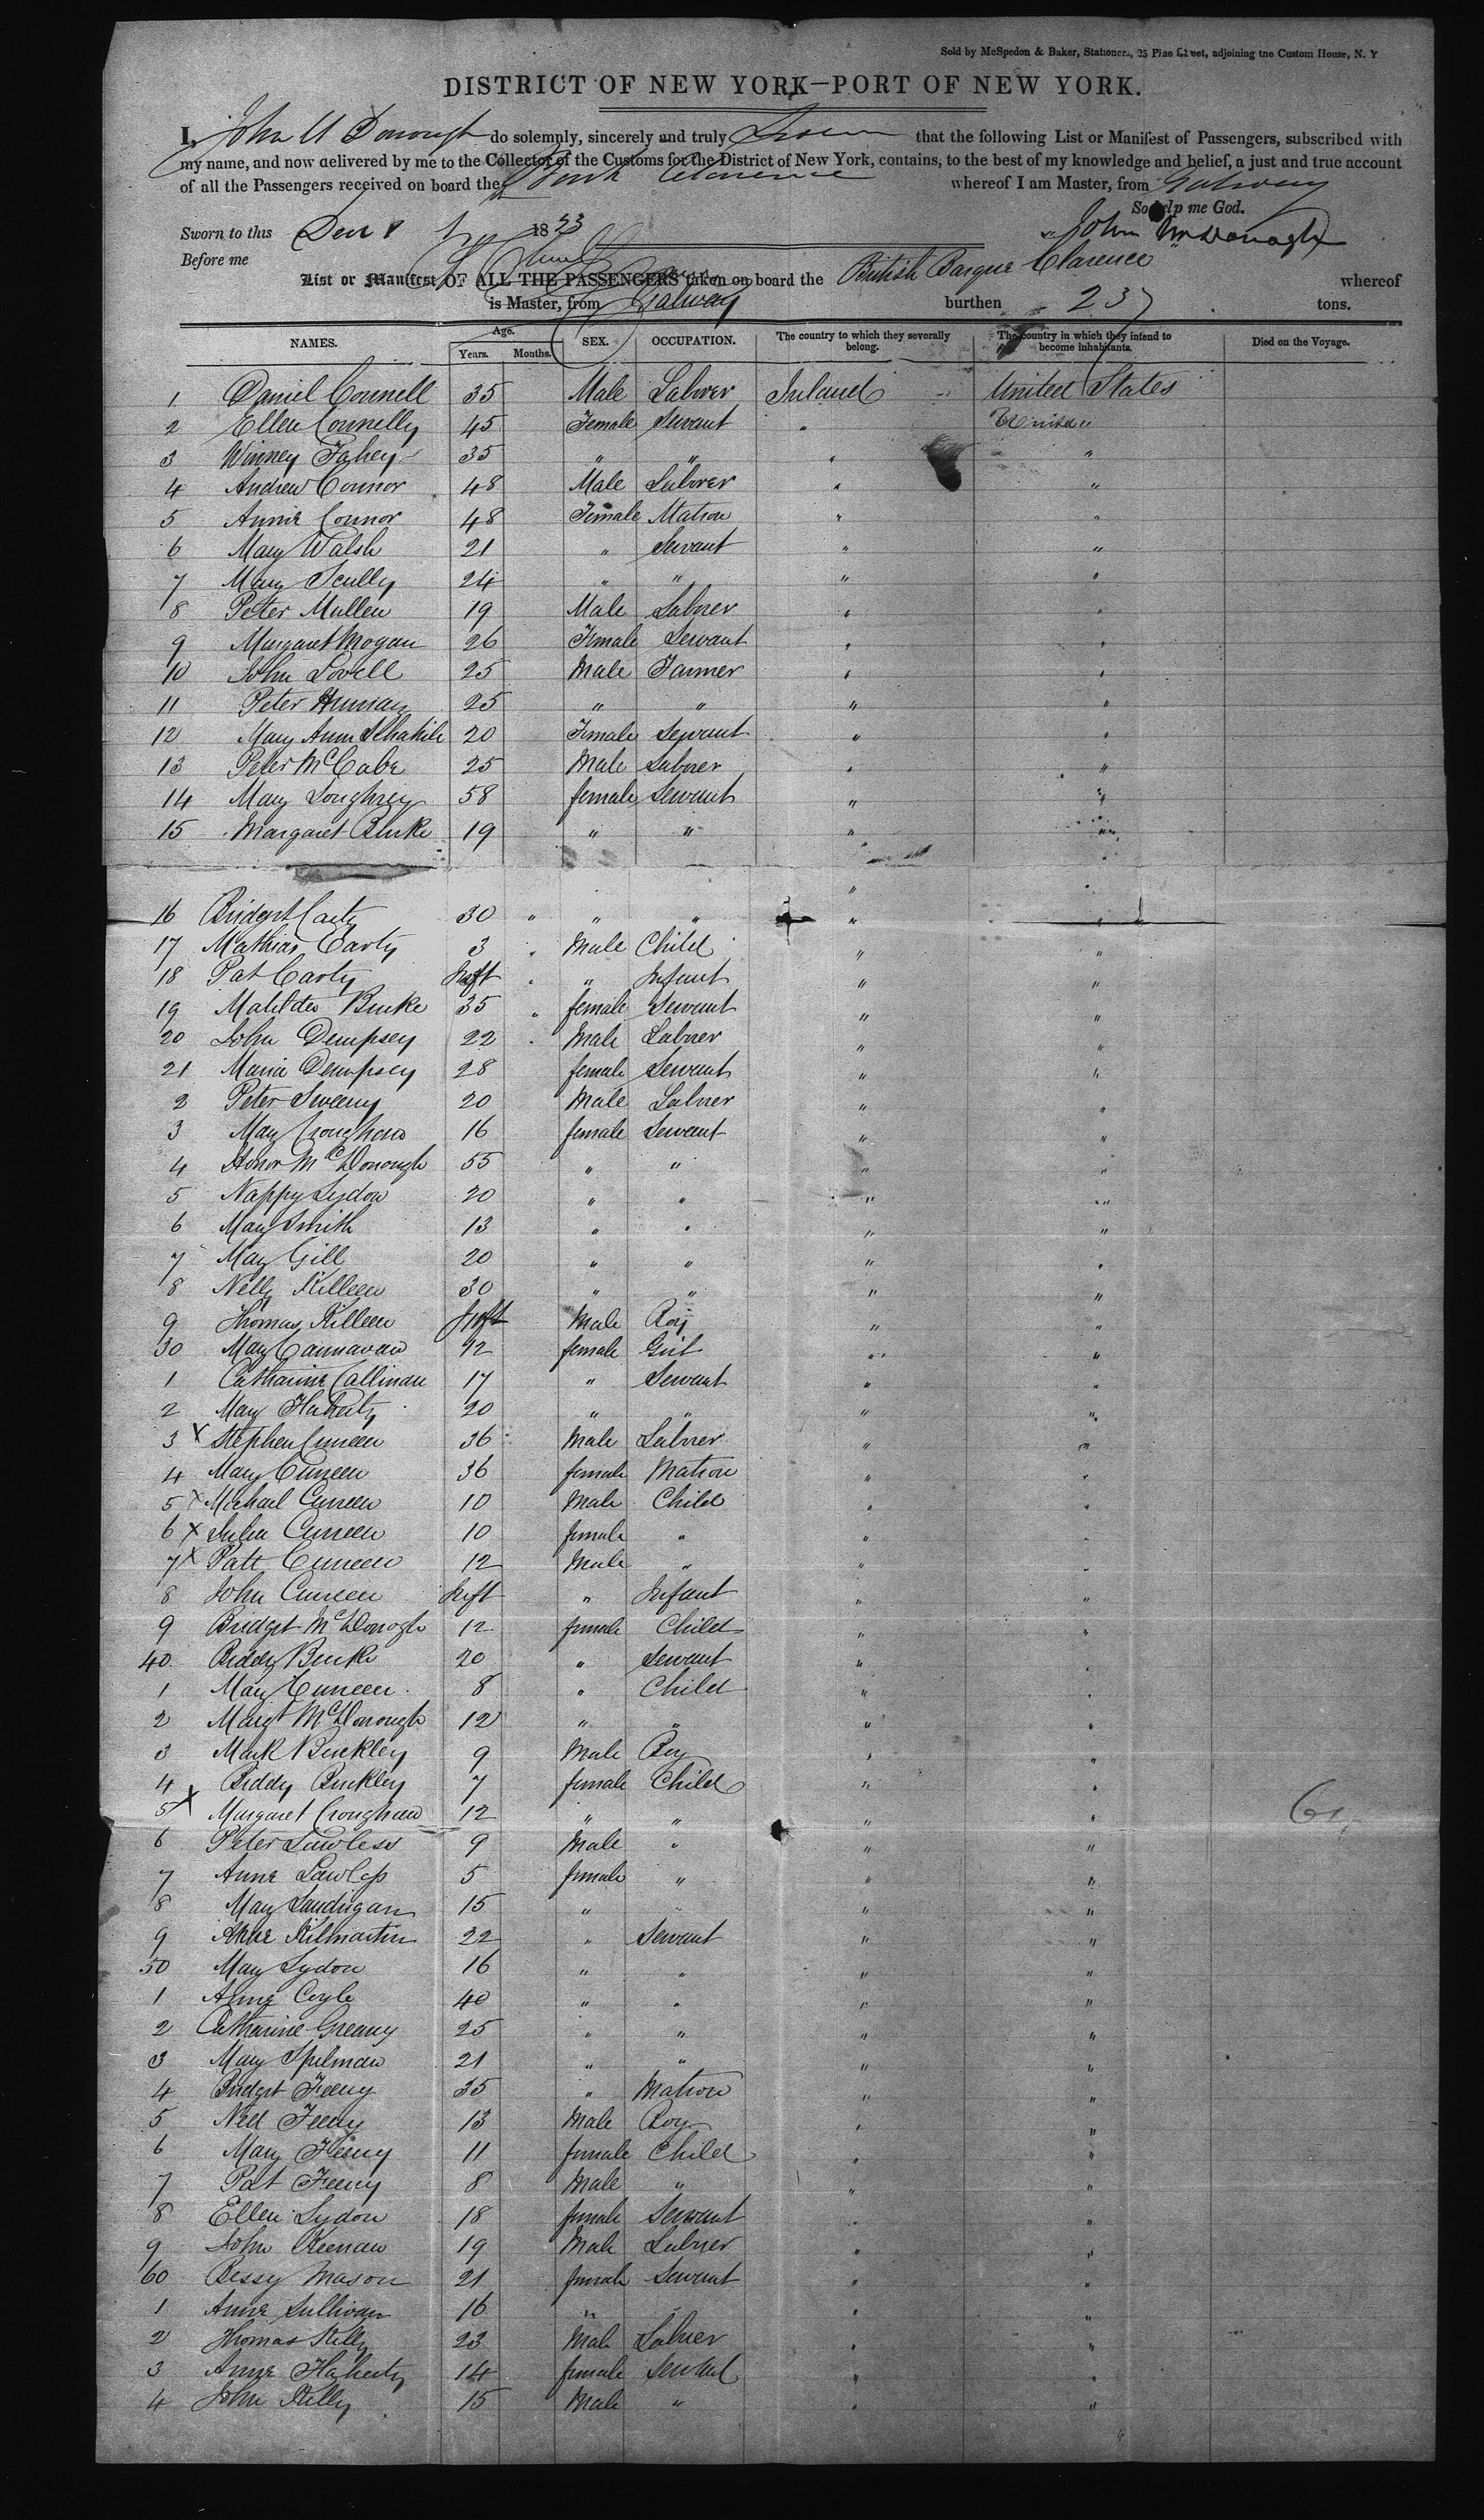 Sold by McSpedon & Baker, Stationers, 25 Pine Street, adjoining the Custom House, N. Y
DISTRICT OF NEW YORK—PORT OF NEW YORK.
I, John McDonough do solemnly, sincerely and truly Swear that the following List or Manifest of Passengers, subscribed with
my name, and now delivered by me to the Collector of the Customs for the District of New York, contains, to the best of my knowledge and belief, a just and true account
of all the Passengers received on board the Bark Clarence whereof I am Master, from Galway
So help me God.
Sworn to this Decr 1853 John McDonagh
Before me
List or Manifest OF ALL THE PASSENGERS taken on board the British Barque Clarence whereof
is Master, from Galway burthen 237 tons.
NAMES. Age. Years. Months. SEX. OCCUPATION. The country to which they severally belong. The country in which they intend to become inhabitants. Died on the Voyage.
1 Daniel Connell 35 Male Laborer Ireland United States
2 Ellen Connelly 45 Female Servant " United "
3 Winney Fahey 35 " " " "
4 Andrew Connor 48 Male Laborer " "
5 Annie Connor 48 Female Matron " "
6 Mary Walsh 21 " Servant " "
7 Mary Scully 24 " " " "
8 Peter Mullen 19 Male Labrer " "
9 Margaret Mogan 26 Female Servant " "
10 John Lovell 25 Male Farmer " "
11 Peter 25 " " " "
12 Mary Ann 20 Female Servant " "
13 Peter McCabe 25 Male Labrer " "
14 Mary Loughrey 58 female Servant " "
15 Margaret Burke 19 " " " "
16 Bridget Carty 30 " " " " "
17 Mathias Carty 3 " Male Child " "
18 Pat Carty Inft " " Infant " "
19 Matilda Burke 35 " female Servant " "
20 John Dempsey 22 " Male Labrer " "
21 Maria Dempsey 28 female Servant " "
2 Peter Sweeny 20 Male Labrer " "
3 Mary Croughan 16 female Servant " "
4 Honor McDonough 55 " " " "
5 Nappy Lydon 20 " " " "
6 Mary Smith 13 " " " "
7 Mary Gill 20 " " " "
8 Nelly Killeen 30 " " " "
9 Thomas Killeen Inft Male Boy " "
30 Mary Cannavan 12 female Girl " "
1 Catharine Callinan 17 " Servant " "
2 Mary Flaherty 20 " " " "
3 X Stephen Cuneen 36 Male Labrer " "
4 Mary Cuneen 36 female Matron " "
5 X Michael Cuneen 10 Male Child " "
6 X Julia Cuneen 10 female " " "
7 X Patt Cuneen 12 Male " " "
8 John Cuneen Inft " Infant " "
9 Bridget McDonogh 12 female Child " "
40 Biddy Burke 20 " Servant " "
1 Mary Cuneen 8 " Child " "
2 Margt McDonough 12 " " " "
3 Mark Buckley 9 Male Boy " "
4 Biddy Buckley 7 female Child " "
5 X Margaret Croughan 12 " " " "
6 Peter Lawless 9 Male " " "
7 Anne Lawless 5 female " " "
8 Mary Landrigan 15 " " " "
9 Anne Kilmartin 22 " Servant " "
50 Mary Lydon 16 " " " "
1 Anne Coyle 40 " " " "
2 Catharine Greany 25 " " " "
3 Mary Spelman 21 " " " "
4 Bridget Feeny 35 " Matron " "
5 Ned Feeny 13 Male Boy " "
6 Mary Feeny 11 female Child " "
7 Pat Feeny 8 Male " " "
8 Ellen Lydon 18 female Servant " "
9 John Keenan 19 Male Labrer " "
60 Bessy Mason 21 female Servant " "
1 Anne Sullivan 16 " " " "
2 Thomas Kelly 23 Male Labrer " "
3 Anne Flaherty 14 female Servant " "
4 John Kelly 15 Male " " "